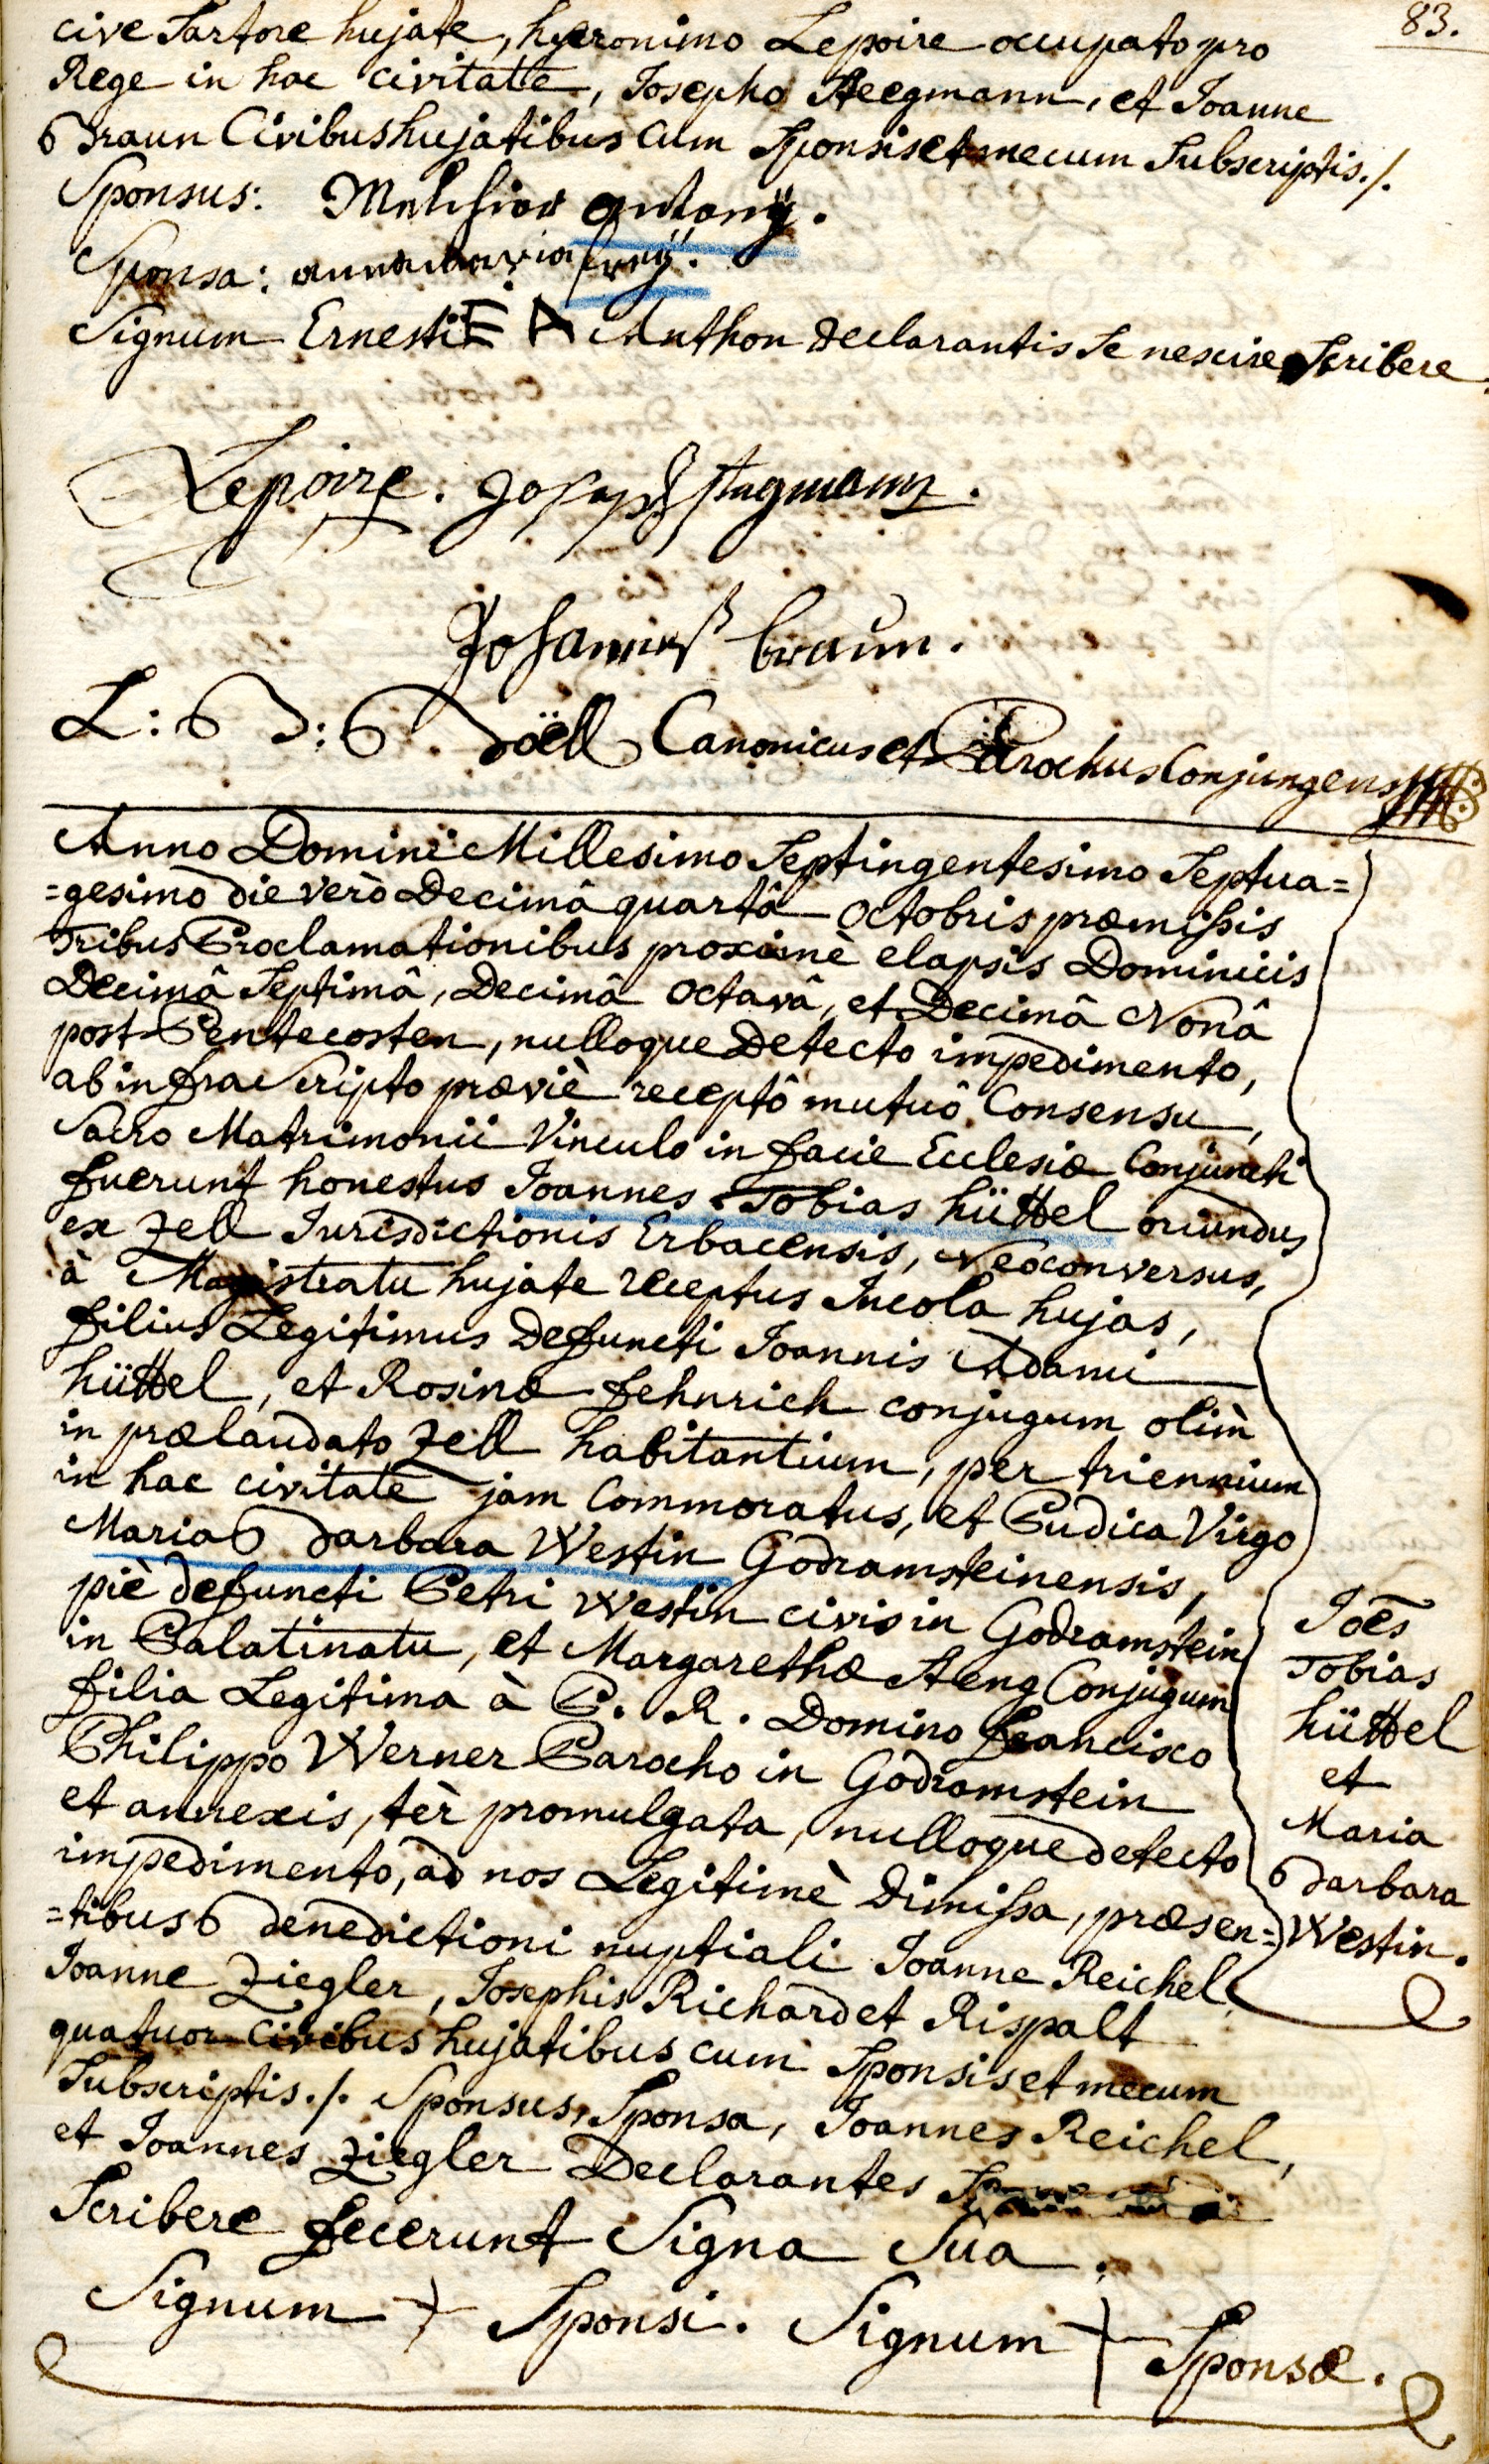 83.
cive Sartore hujate, hyeronimo Lepoire occupato pro
Rege in hac civitate, Josepho Steegmann, et Joanne
Braun Civibus hujatibus cum Sponsis et mecum Subscriptis ./.
Sponsus: Melchior antonÿ.
Sponsa: anna maria freÿ.
Signum Ernesti E A Anthon declarantis se nescire Scribere.
Lepoire. Joseph stegmann.
Johannes braun.
L: B: B. döell Canonicus et Parochus Conjungens
Anno Domini Millesimo Septingentesimo Septua=
=gesimo die verò Decimâ quartâ octobris præmissis
tribus Proclamationibus proximè elapsis Dominicis
Decimâ Septimâ, Decimâ octavâ, et Decimâ Nonâ
post Pentecosten, nulloque detecto impedimento,
ab infra scripto præviè receptô mutuô Consensu,
Sacro Matrimonii Vinculo in facie Ecclesiæ Conjuncti
fuerunt honestus Joannes Tobias hüttel oriundus
ex Zell Jurisdictionis Erbacensis, Neoconversus,
à Magistratu hujate receptus Incola hujas,
filius Legitimus Defuncti Joannis Adami
hüttel, et Rosinæ fehnrich conjugum olim
in prælaudato Zell habitantium, per triennium
in hac civitate jam Commoratus, et Pudica Virgo
Maria Barbara Westin Godramsteinensis,
piè defuncti Petri Westin civis in Godramstein
in Palatinatu, et Margarethæ Steng Conjugum
filia Legitima à P. R. Domino francisco
Philippo Werner Parocho in Godramstein
et annexis, tèr promulgata, nulloque detecto
impedimento, ad nos Legitimè Dimissa, præsen=
=tibus Benedictioni nuptiali Joanne Reichel,
Joanne Ziegler, Josephis Richard et Rispalt
quatuor civibus hujatibus cum Sponsis et mecum
Subscriptis ./. Sponsus, Sponsa, Joannes Reichel,
et Joannes Ziegler Declarantes
Scribere fecerunt Signa Sua.
Signum + Sponsi. Signum + Sponsæ.
Joēs
Tobias
hüttel
et
Maria
Barbara
Westin.